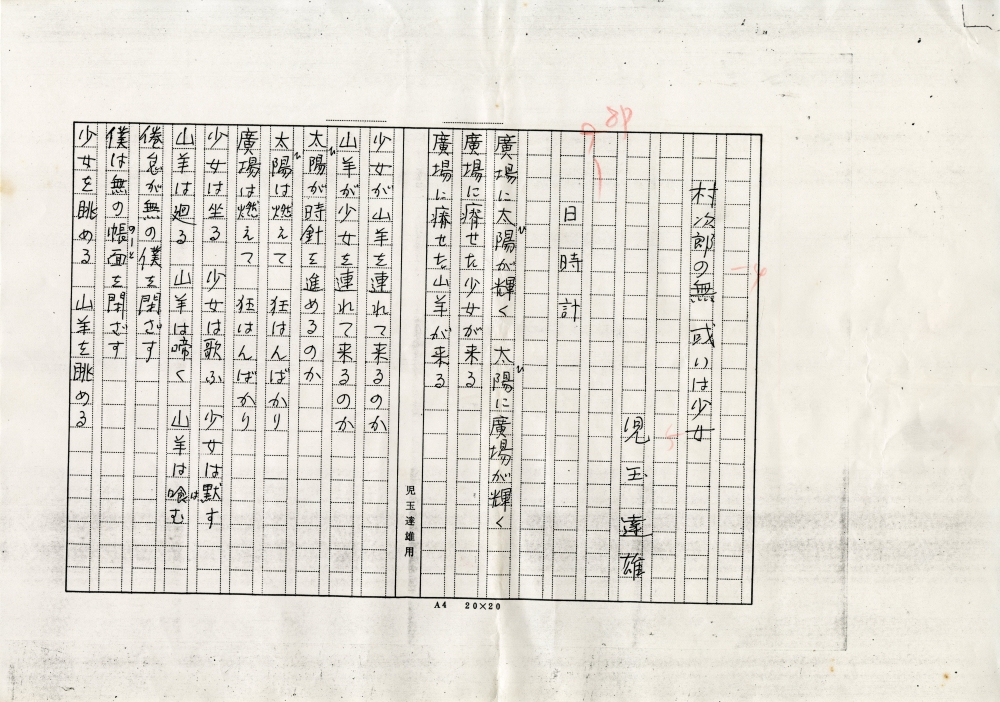 村次郎の無 或いは少女
児玉達雄
日時計
廣場に太陽が輝く 太陽に廣場が輝く
廣場に瘠せた少女が来る
廣場に瘠せた山羊が来る
児玉達雄用
少女が山羊を連れて来るのか
山羊が少女を連れて来るのか
太陽が時針を進めるのか
太陽は燃えて 狂はんばかり
廣場は燃えて 狂はんばかり
少女は坐る 少女は歌ふ 少女は黙す
山羊は廻る 山羊は啼く 山羊は喰む
倦怠が無の僕を閉ざす
僕は無の帳面を閉ざす
少女を眺める 山羊を眺める
A4 20×20